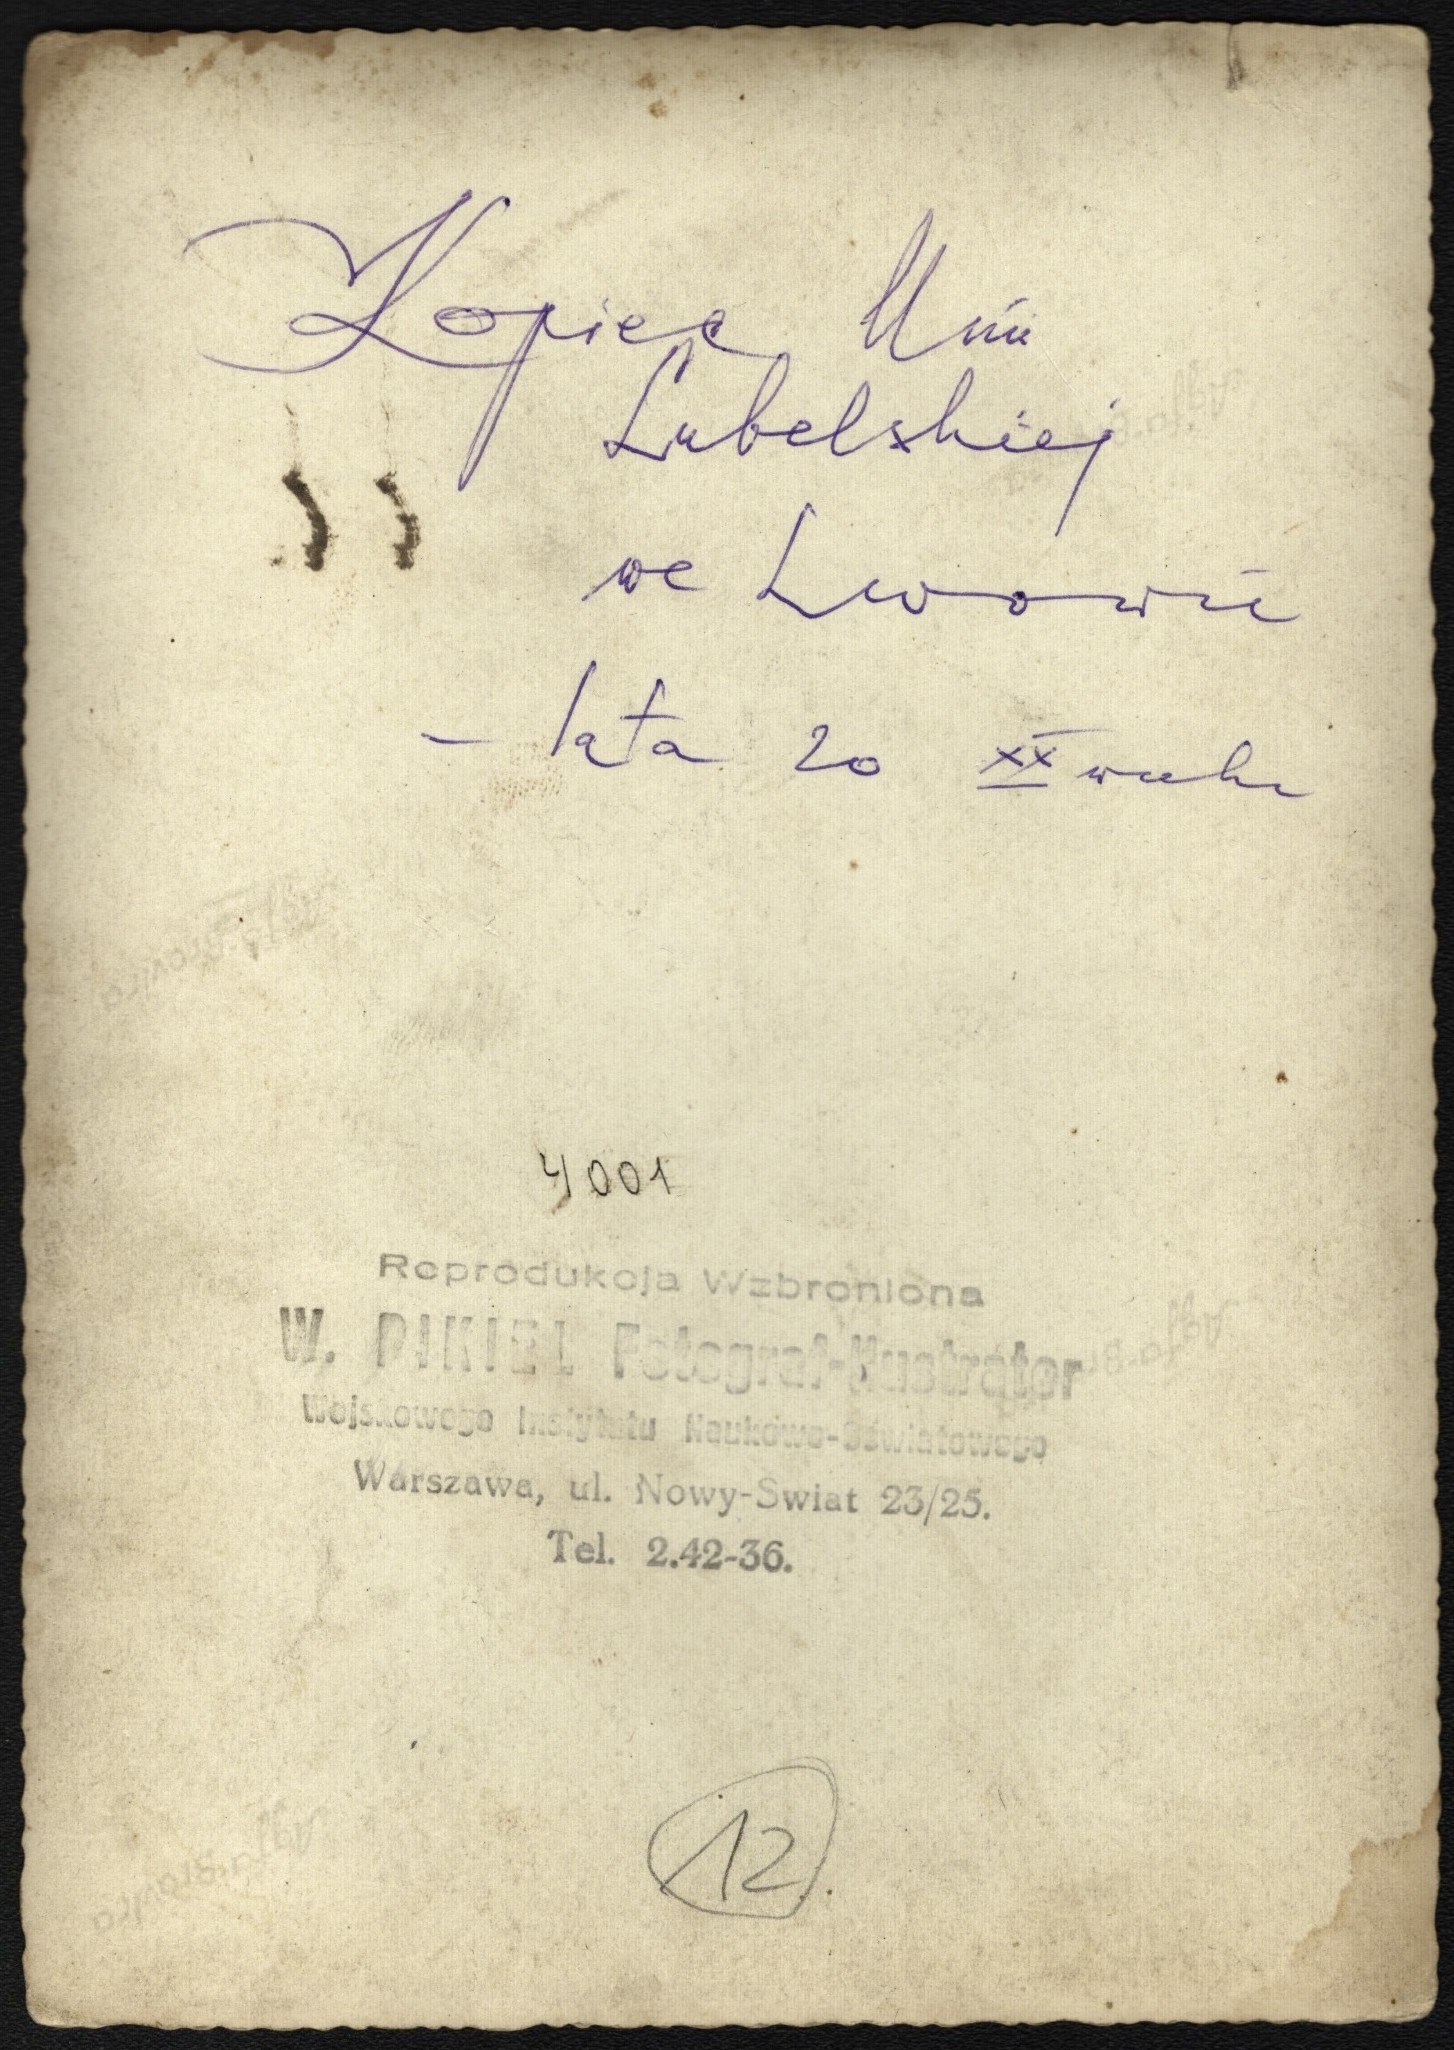 Kopiec Unii
Lubelskiej
we Lwowie
- lata 20 XX wieku
4001
Reprodukcja Wzbroniona
W. PIKIEL Fotograf-Ilustrator
Wojskowego Instytutu Naukowo-Oświatowego
Warszawa, ul. Nowy-Świat 23/25.
Tel. 2.42-36.
12